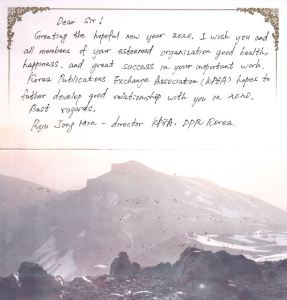 Dear Sir!
Greeting the hopeful new year 2020. I wish you and
all members of your esteemed organization good health,
happiness. and great success in your important work.
Korea Publications Exchange Association (KPEA) hopes to
futher develop good relationship with you in 2020.
Best regards,
Ryu Jong Min - director KPEA. DPR Korea.